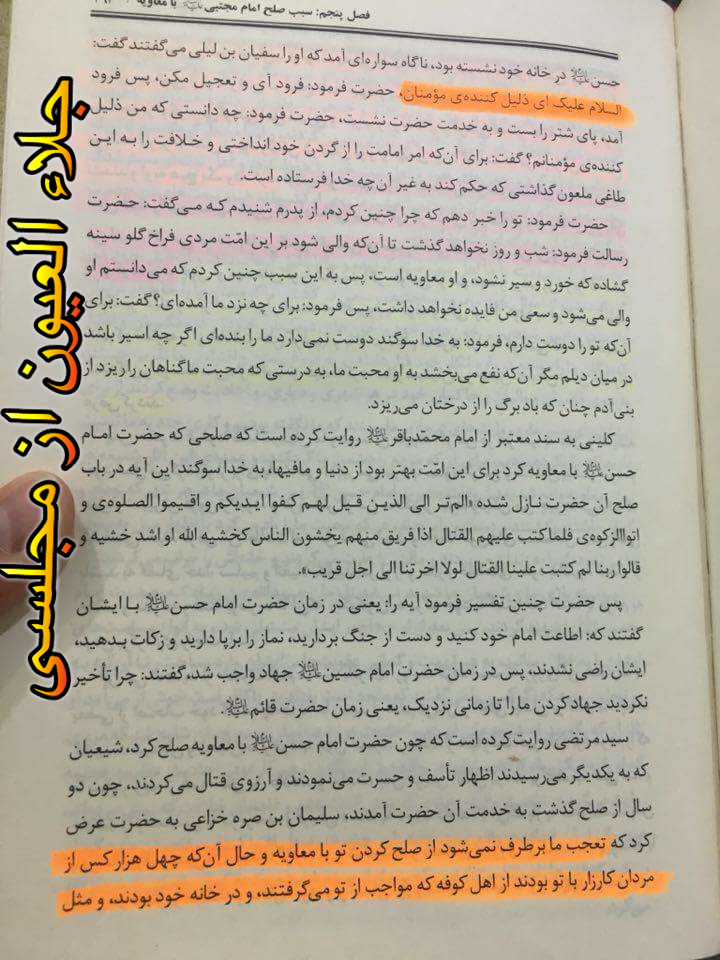 فصل پنجم: سبب صلح امام مجتبی با معاویه
حسن در خانه خود نشسته بود، ناگاه سواره‌ای آمد که او را سفیان بن لیلی می‌گفتند گفت:
السلام علیک ای ذلیل کننده‌ی مؤمنان، حضرت فرمود: فرود آی و تعجیل مکن، پس فرود
آمد، پای شتر را بست و به خدمت حضرت نشست، حضرت فرمود: چه دانستی که من ذلیل
کننده‌ی مؤمنانم؟ گفت: برای آن‌که امر امامت را از گردن خود انداختی و خلافت را به این
طاغی ملعون گذاشتی که حکم کند به غیر آن چه خدا فرستاده است.
حضرت فرمود: تو را خبر دهم که چرا چنین کردم، از پدرم شنیدم کـه مـی‌گفت: حـضرت
رسالت فرمود: شب و روز نخواهد گذشت تا آن‌که والی شود بر این امّت مردی فراخ گلو سینه
گشاده که خورد و سیر نشود، و او معاویه است، پس به این سبب چنین کردم که می‌دانستم او
والی می‌شود و سعی من فایده نخواهد داشت، پس فرمود: برای چه نزد ما آمده‌ای؟ گفت: برای
آن‌که تو را دوست دارم، فرمود: به خدا سوگند دوست نمی‌دارد ما را بنده‌ای اگر چه اسیر باشد
در میان دیلم مگر آن‌که نفع می‌بخشد به او محبت ما، به درستی که محبت ما گناهان را ریزد از
بنی‌آدم چنان که باد برگ را از درختان می‌ریزد.
کلینی به سند معتبر از امام محمّدباقر روایت کرده است که صلحی که حضرت امـام
حسن با معاویه کرد برای این امّت بهتر بود از دنیا و مافیها، به خدا سوگند این آیه در باب
صلح آن حضرت نـازل شـده «الم‌تر الی الذیـن قیل لهـم کـفوا ایـدیکم و اقیموا الصلوه‌ی و
اتواالزکوه‌ی فلما کتب علیهم القتال اذا فریق منهم یخشون الناس کخشیه الله او اشد خشیه و
قالوا ربنا لم کتبت علینا القتال لولا اخرتنا الی اجل قریب».
پس حضرت چنین تفسیر فرمود آیه را: یعنی در زمان حضرت امام حسن بـا ایـشان
گفتند که: اطاعت امام خود کنید و دست از جنگ بردارید، نماز را برپا دارید و زکات بـدهید،
ایشان راضی نشدند، پس در زمان حضرت امام حسین جهاد واجب شد، گفتند: چرا تأخیر
نکردید جهاد کردن ما را تا زمانی نزدیک، یعنی زمان حضرت قائم.
سیدمرتضی روایت کرده است که چون حضرت امام حسن با معاویه صلح کرد، شیعیان
که به یکدیگر می‌رسیدند اظهار تأسف و حسرت می‌نمودند و آرزوی قتال می‌کردند، چون دو
سال از صلح گذشت به خدمت آن حضرت آمدند، سلیمان بن صره خزاعی به حضرت عرض
کرد که تعجب ما برطرف نمی‌شود از صلح کردن تو با معاویه و حال آن‌که چهل هزار کس از
مردان کارزار با تو بودند از اهل کوفه که مواجب از تو می‌گرفتند، و در خانه خود بودند، و مثل
جلاء العیون از مجلسی